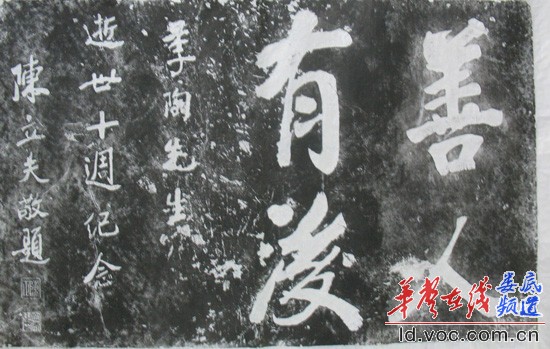 善人
有後
季陶先生
逝世十週紀念
陳立夫敬題
华声在线
娄底
频道
ld.voc.com.cn